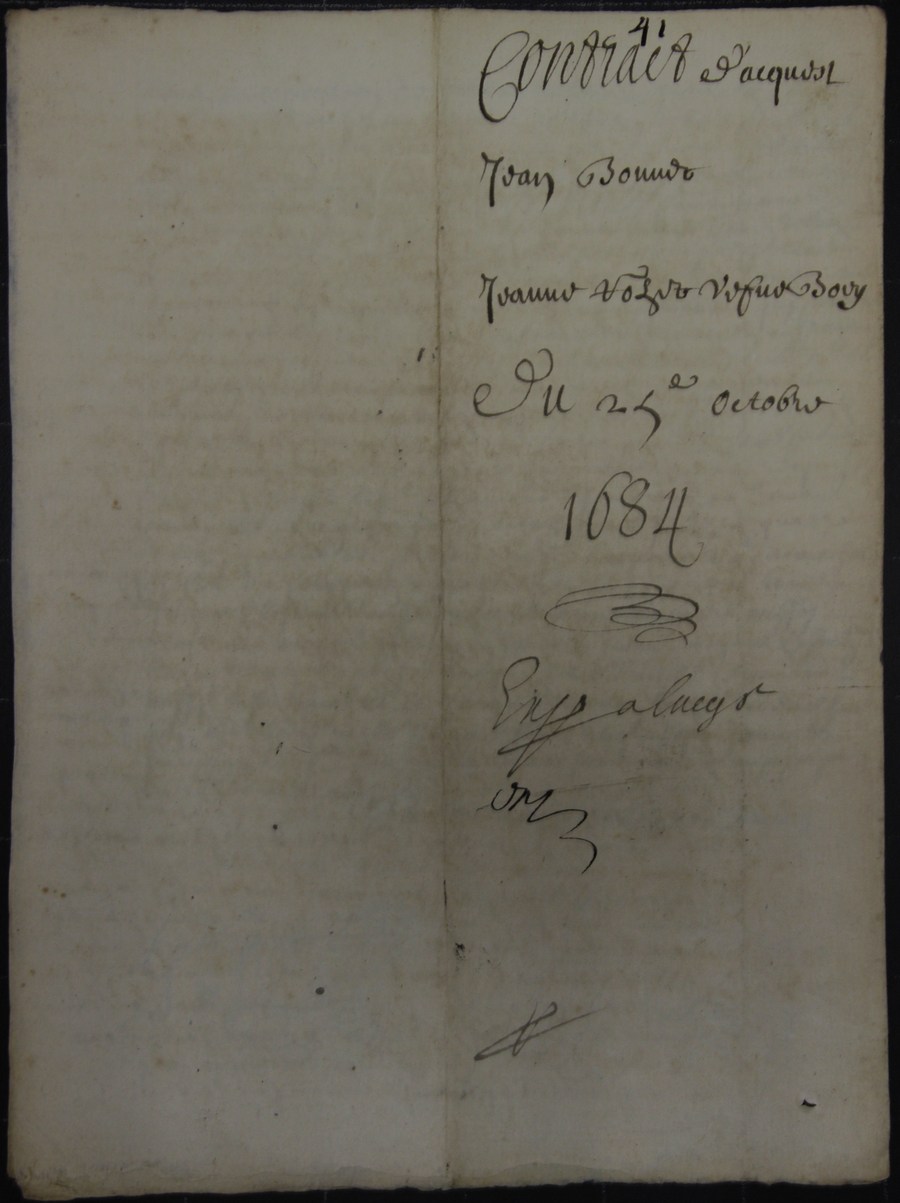 41
Contract d'acquest
Jean Bonnet
Jeanne vefue Boey
Du 25e octobre
1684